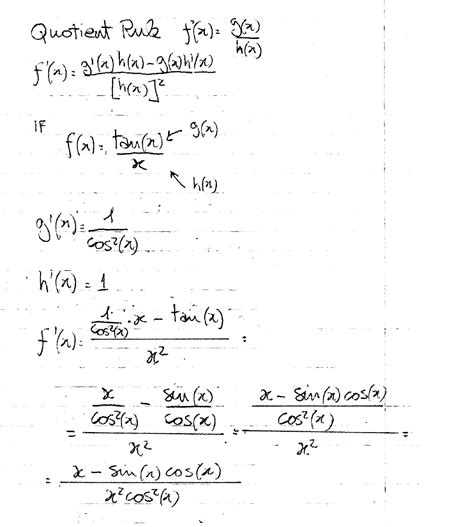 Quotient Rule f'(x) = g(x)/h(x)
f'(x) = g'(x)h(x) - g(x)h'(x)/[h(x)]²
IF
f(x) = tan(x)/x ← g(x)
↖ h(x)
g'(x) = 1/cos²(x)
h'(x) = 1
f'(x) = (1/cos²(x) · x - tan(x))/x² =
= (x/cos²(x) - sin(x)/cos(x))/x² = ((x - sin(x)cos(x))/cos²(x))/x² =
= (x - sin(x)cos(x))/(x²cos²(x))